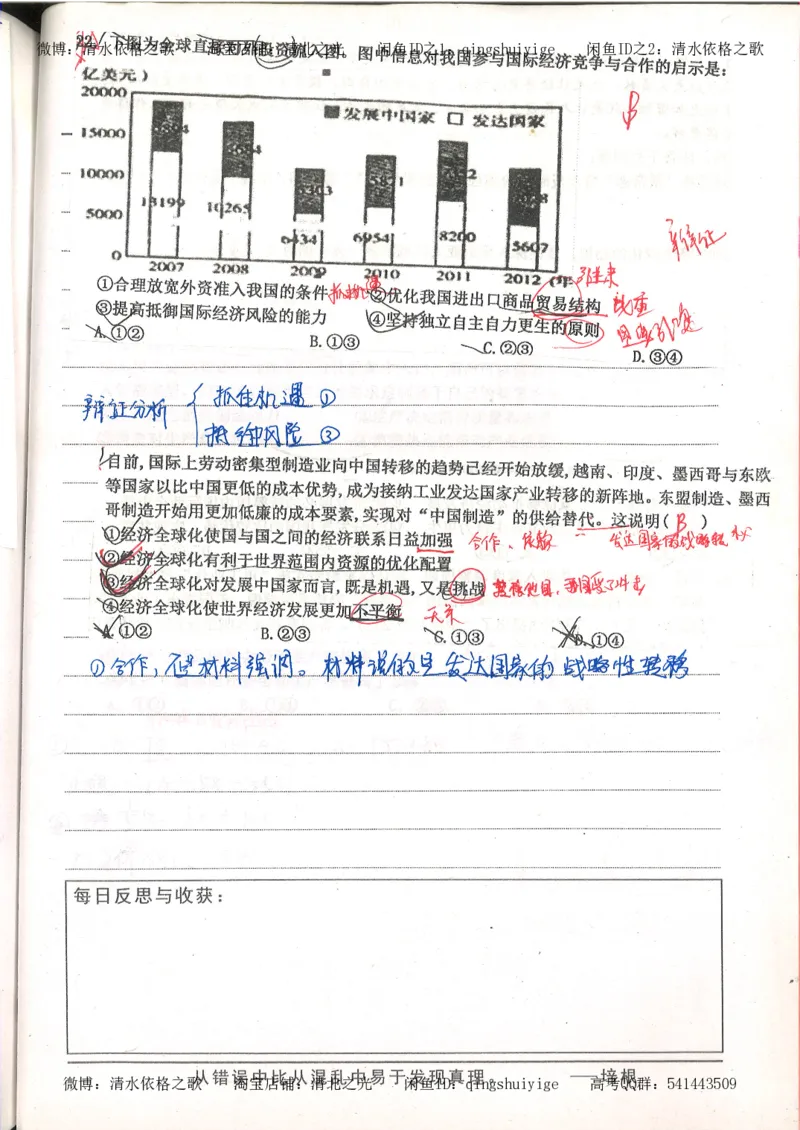 微博：清水依格之歌 淘宝店铺：清北之光 闲鱼ID之1：qingshuiyige 闲鱼ID之2：清水依格之歌
22 下图为全球直接对外投资流入图。图中信息对我国参与国际经济竞争与合作的启示是：
亿美元）
B
20000
15000
10000
5000
0
发展中国家 发达国家
13199 10265 6434 6954 8200 5607
2007 2008 2009 2010 2011 2012 (年
辩证
引进来
①合理放宽外资准入我国的条件 抓机遇 ②优化我国进出口商品贸易结构
③提高抵御国际经济风险的能力 ④坚持独立自主自力更生的原则
A.①② B.①③ C.②③ D.③④
辩证分析 { 抓住机遇 ①
抵御风险 ③
目前,国际上劳动密集型制造业向中国转移的趋势已经开始放缓,越南、印度、墨西哥与东欧
等国家以比中国更低的成本优势,成为接纳工业发达国家产业转移的新阵地。东盟制造、墨西
哥制造开始用更加低廉的成本要素,实现对“中国制造”的供给替代。这说明( B )
①经济全球化使国与国之间的经济联系日益加强 合作、
②经济全球化有利于世界范围内资源的优化配置
③经济全球化对发展中国家而言,既是机遇,又是挑战
④经济全球化使世界经济发展更加不平衡 无关
A.①② B.②③ C.①③ D.①④
①合作，不是材料强调。材料说的是发达国家的战略性转移
每日反思与收获：
从错误中比从混乱中易于发现真理。 ——培根
微博：清水依格之歌 淘宝店铺：清北之光 闲鱼ID：qingshuiyige 高考QQ群：541443509